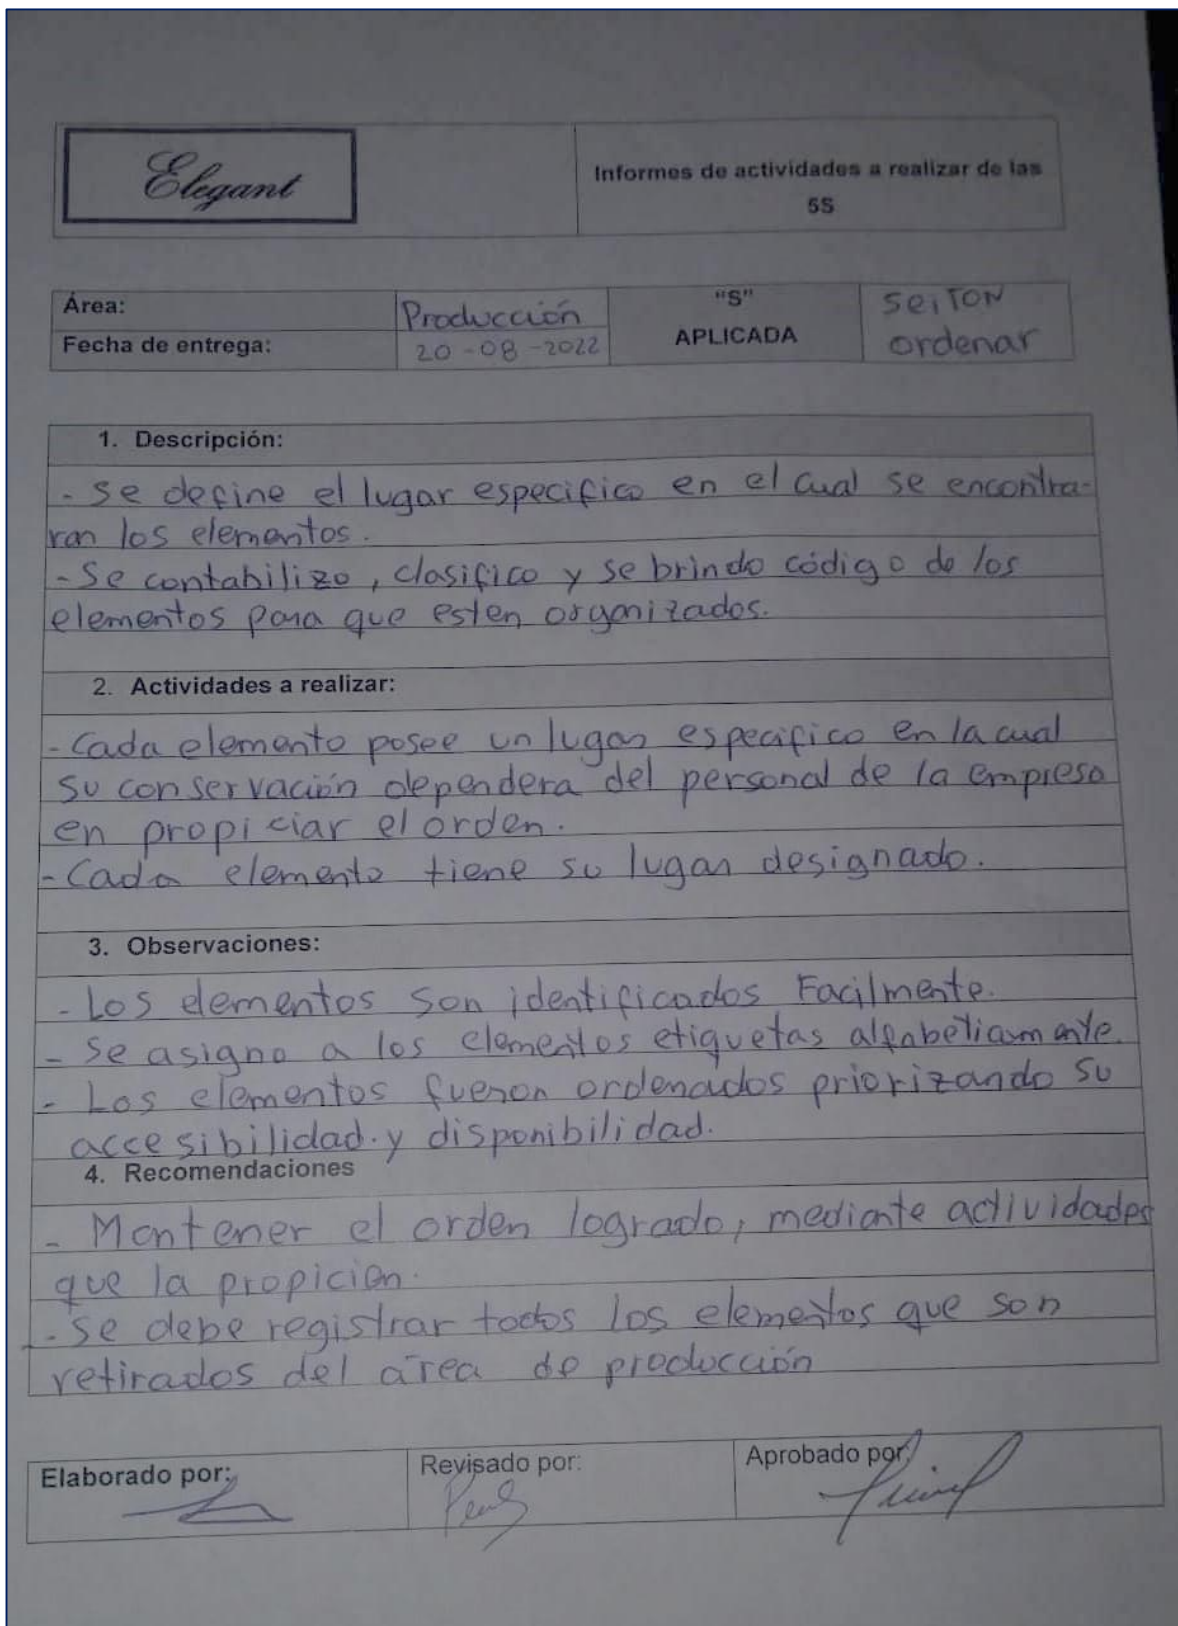 Elegant
Informes de actividades a realizar de las
5S
Área:
Producción
"S"
APLICADA
SeiTON
ordenar
Fecha de entrega:
20-08-2022
1. Descripción:
- se define el lugar especifico en el cual se encontra-
ran los elementos.
- Se contabilizo, clasifico y se brindo código de los
elementos para que esten organizados.
2. Actividades a realizar:
- Cada elemento posee un lugar especifico en la cual
su conservación dependera del personal de la empresa
en propiciar el orden.
- Cada elemento tiene su lugar designado.
3. Observaciones:
- Los elementos son identificados Facilmente.
- Se asigno a los elementos etiquetas alfabeticamente.
- Los elementos fueron ordenados priorizando su
accesibilidad. y disponibilidad.
4. Recomendaciones
- Mantener el orden logrado, mediante actividades
que la propicien.
- Se debe registrar todos los elementos que son
retirados del área de producción
Elaborado por:
Revisado por:
Aprobado por: